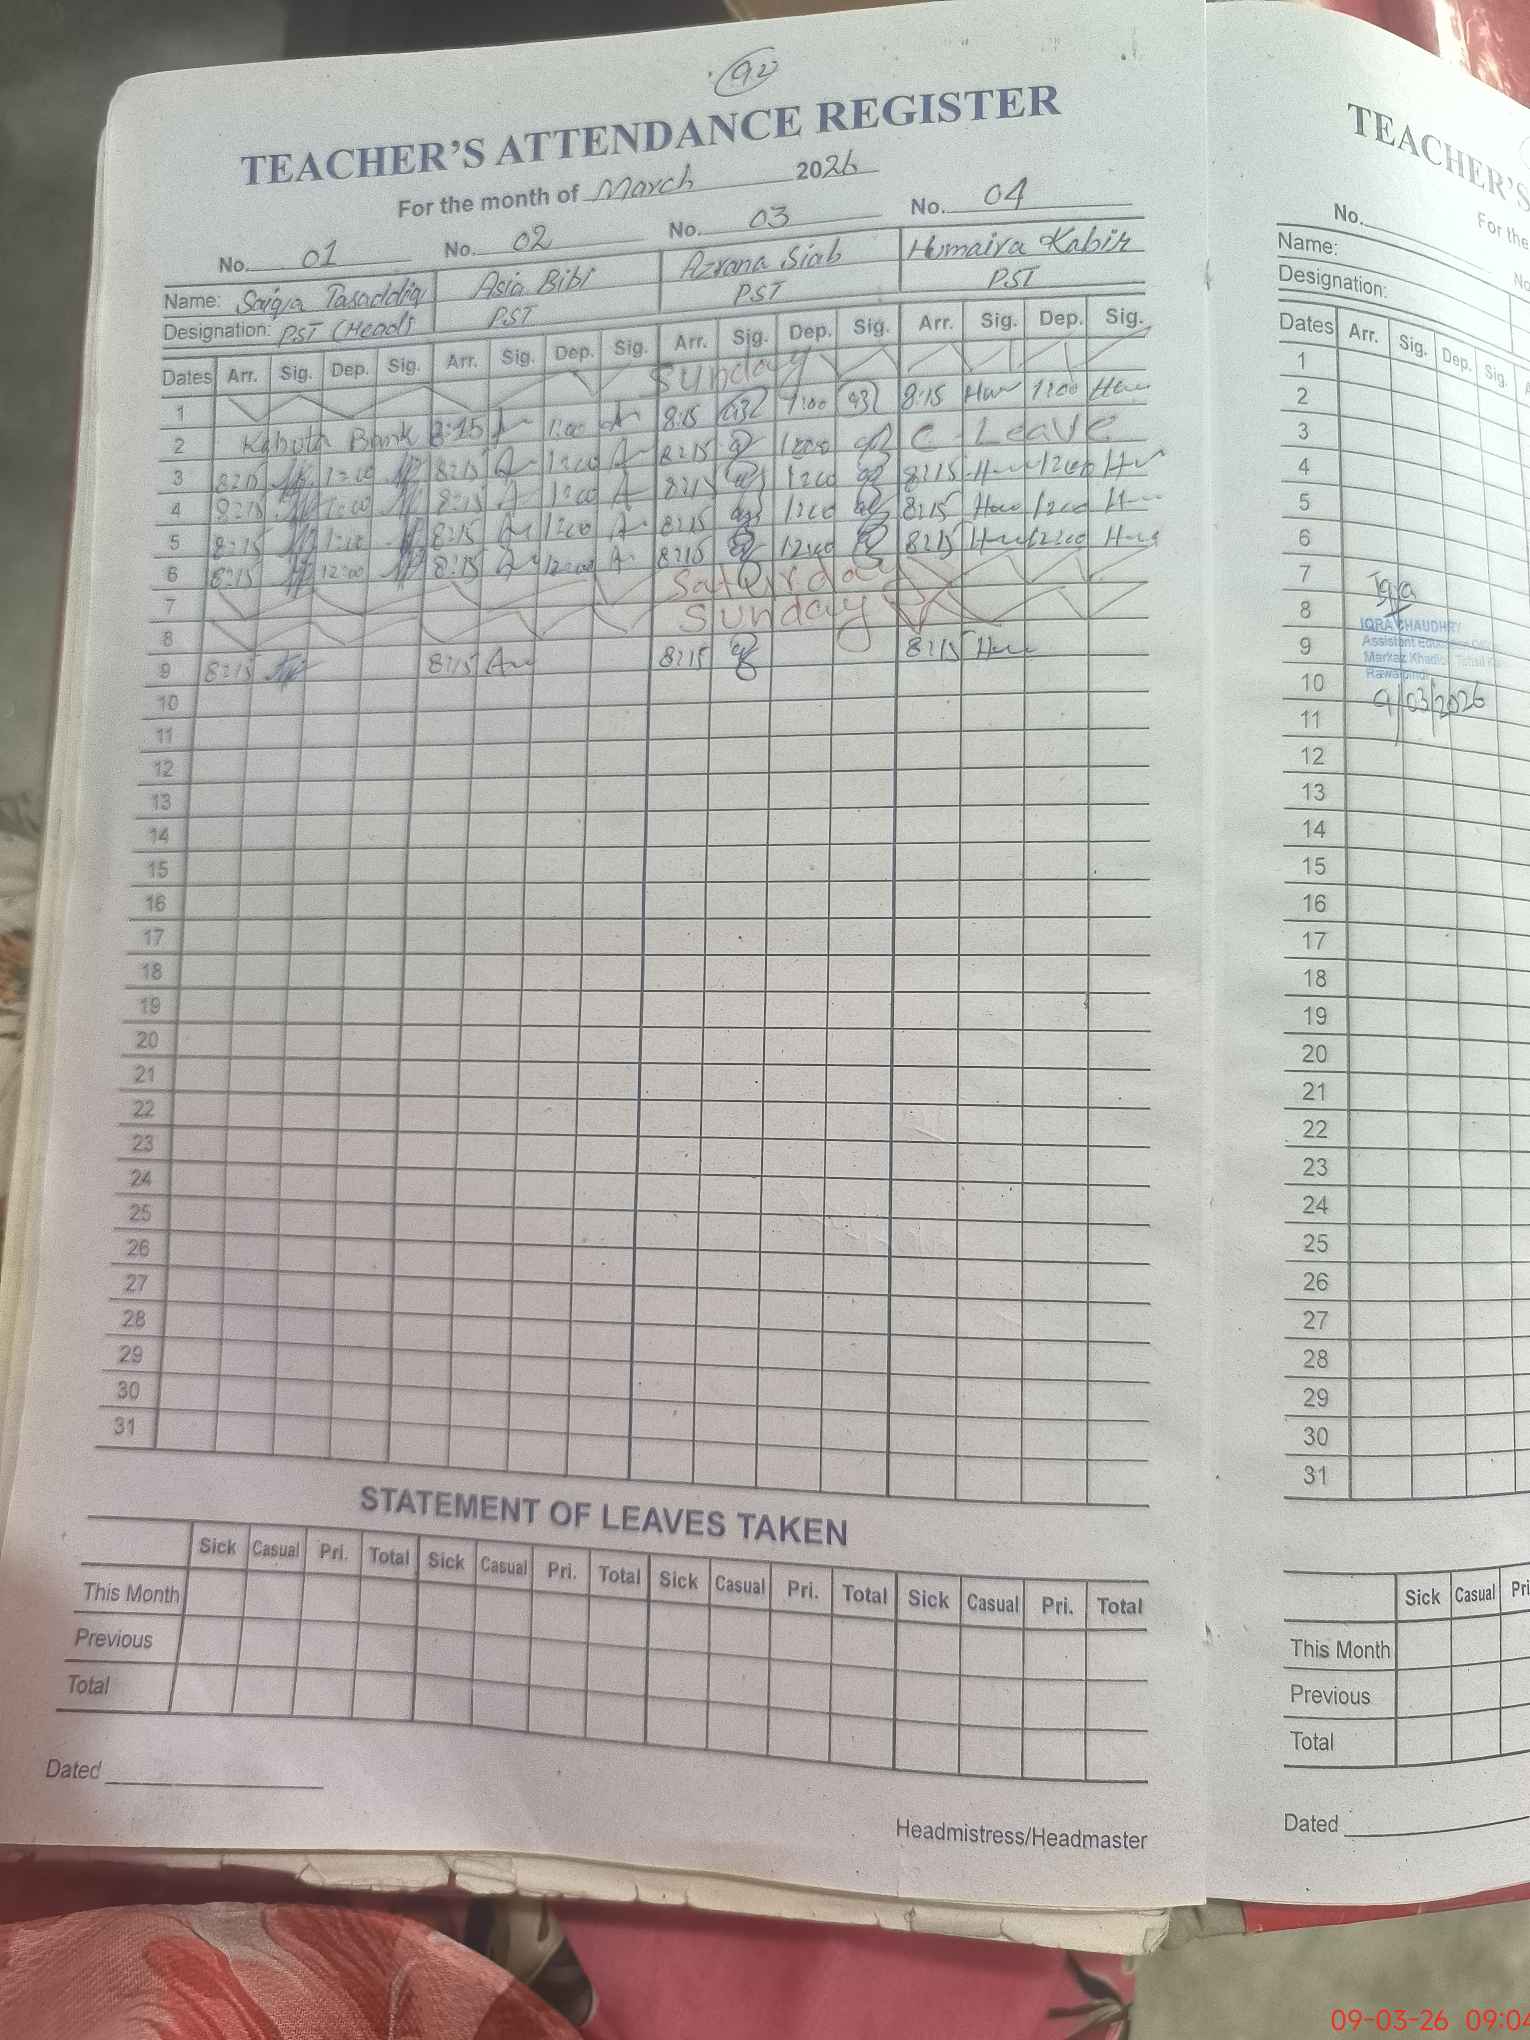 92
TEACHER'S ATTENDANCE REGISTER
For the month of March 2026
No. 01 No. 02 No. 03 No. 04
Name: Saiqa Tasaddiq Asia Bibi Azrana Siab Humaira Kabir
Designation: PST (Head) PST PST PST
Dates Arr. Sig. Dep. Sig. Arr. Sig. Dep. Sig. Arr. Sig. Dep. Sig. Arr. Sig. Dep. Sig.
1 Sunday
2 Kahuta Bank 8:15 1:00 8:15 1:00 8:15 1:00
3 8:15 12:00 8:15 12:00 8:15 12:00 C. Leave
4 8:15 12:00 8:15 12:00 8:15 12:00 8:15 12:00
5 8:15 12:00 8:15 12:00 8:15 12:00 8:15 12:00
6 8:15 12:00 8:15 12:00 8:15 12:00 8:15 12:00
7 Saturday
8 Sunday
9 8:15 8:15 8:15 8:15
10
11
12
13
14
15
16
17
18
19
20
21
22
23
24
25
26
27
28
29
30
31
STATEMENT OF LEAVES TAKEN
Sick Casual Pri. Total Sick Casual Pri. Total Sick Casual Pri. Total Sick Casual Pri. Total
This Month
Previous
Total
Dated
Headmistress/Headmaster
TEACHER'S
For the
No.
Name:
Designation:
Dates Arr. Sig. Dep. Sig.
1
2
3
4
5
6
7
8
9
10
11
12
13
14
15
16
17
18
19
20
21
22
23
24
25
26
27
28
29
30
31
Iqra
IQRA CHAUDHRY
Assistant Education
Markaz Tehsil
Rawalpindi
9/03/2026
Sick Casual Pri
This Month
Previous
Total
Dated
09-03-26 09:04